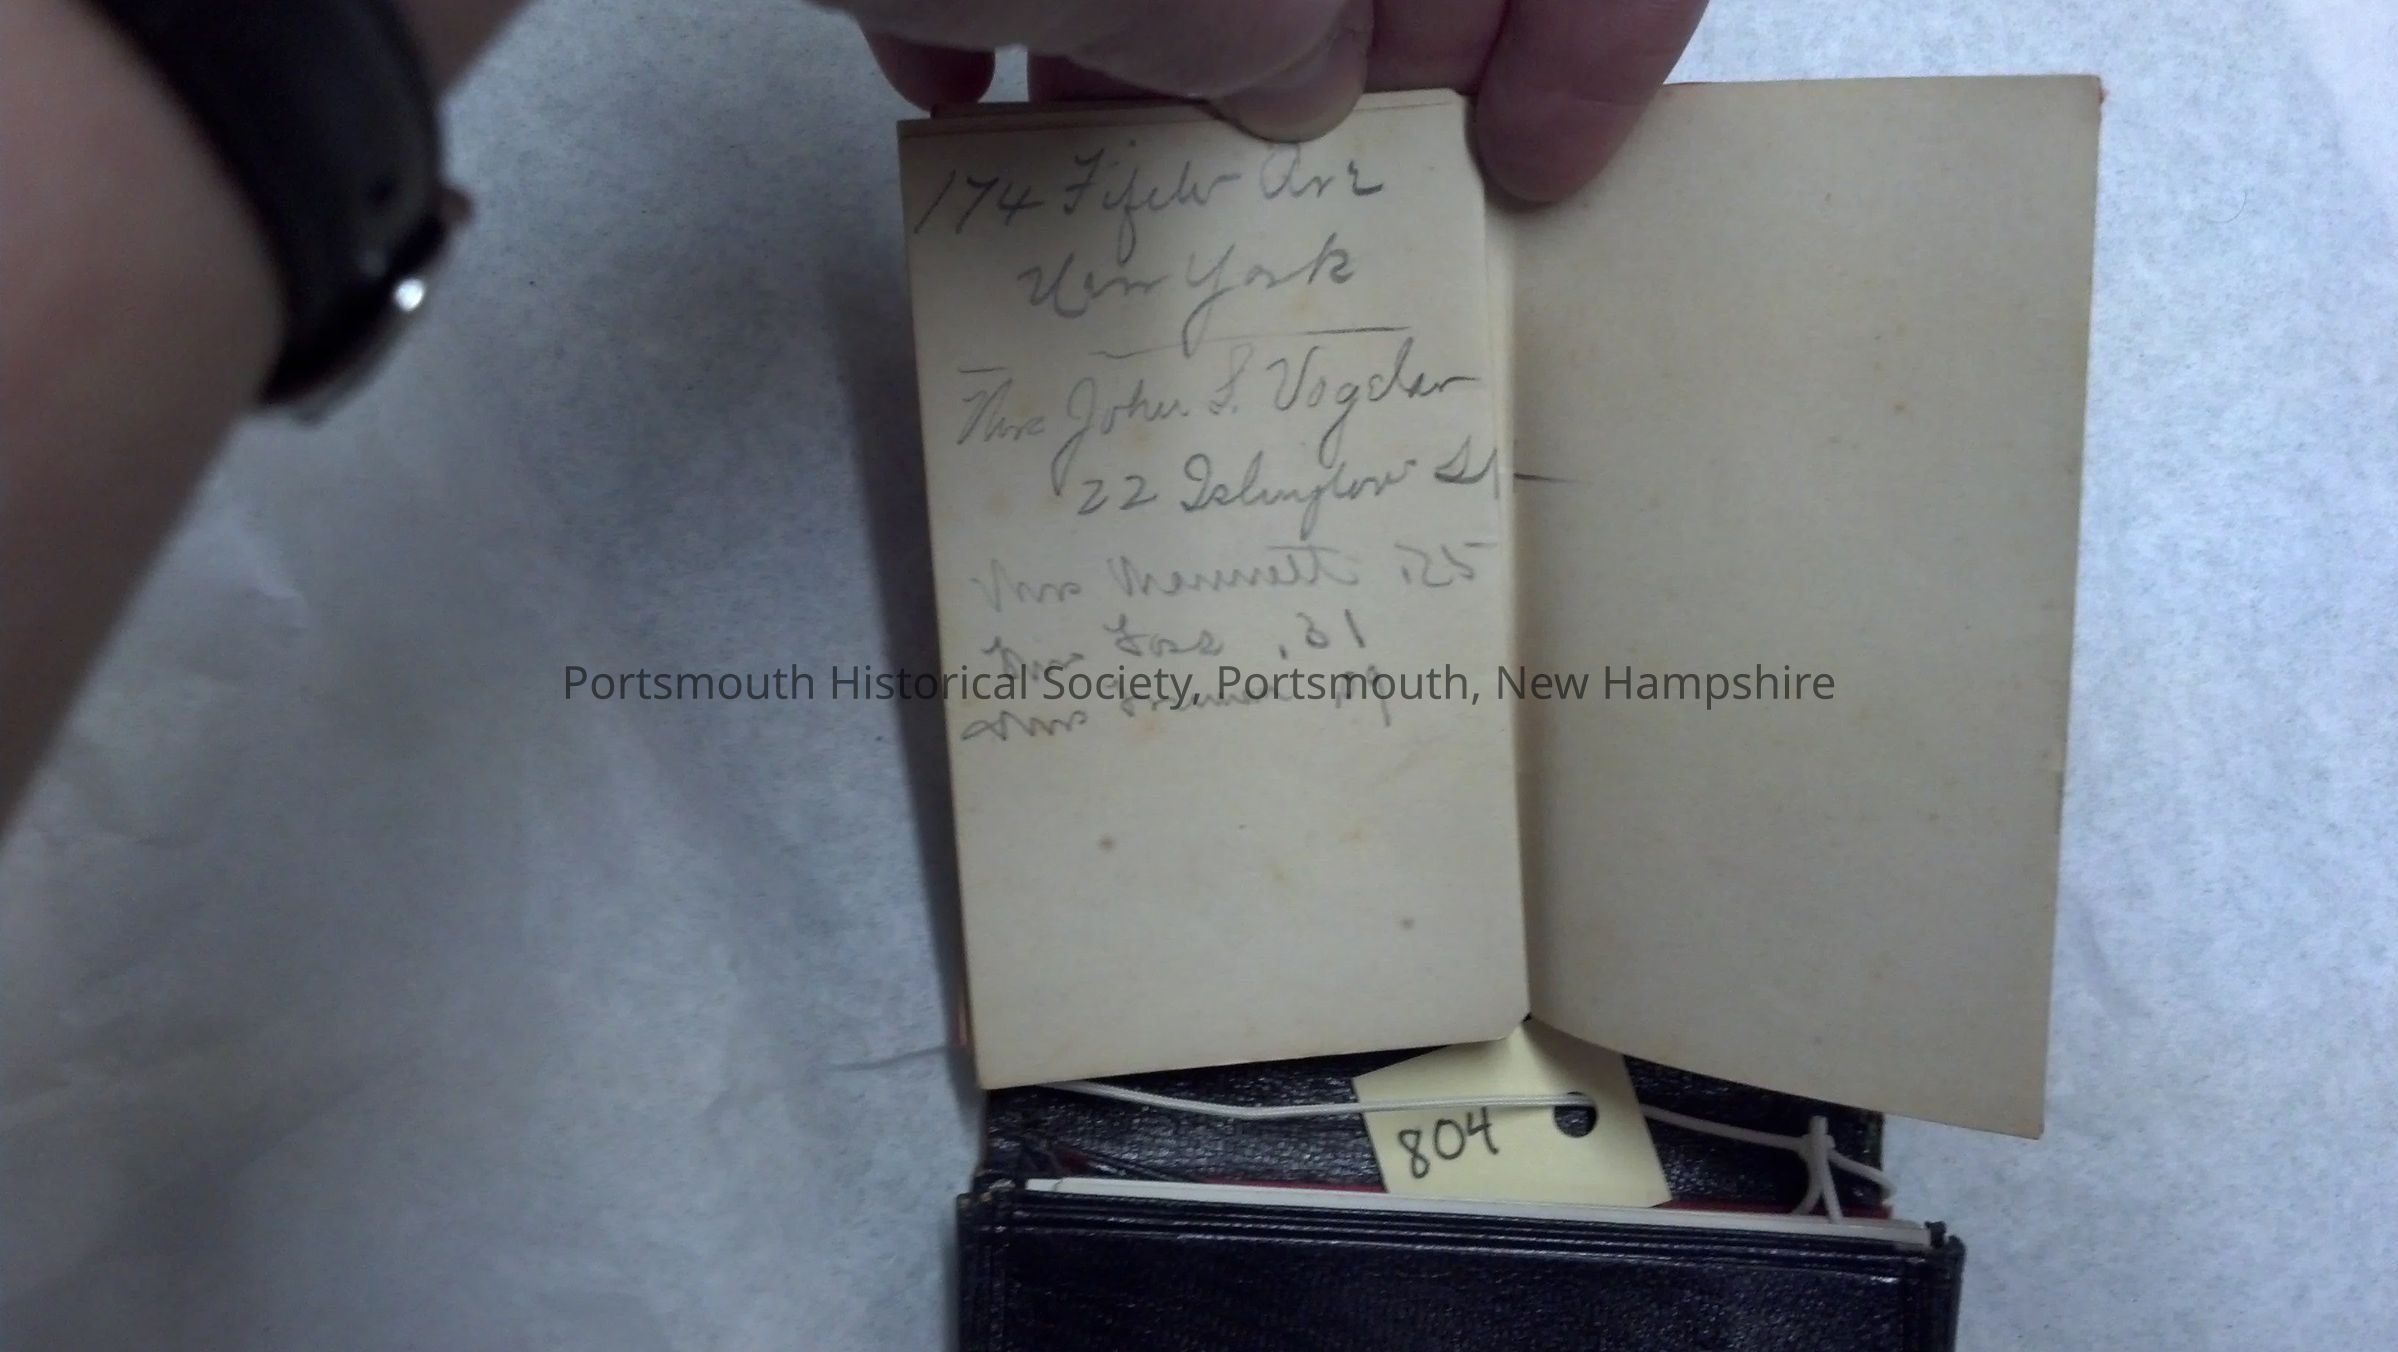 174 Fifth Ave
New York
Mrs John F. Vogdes
22 Islington St
Mrs .25
Mrs Foss .31
Mrs
Portsmouth Historical Society, Portsmouth, New Hampshire
804